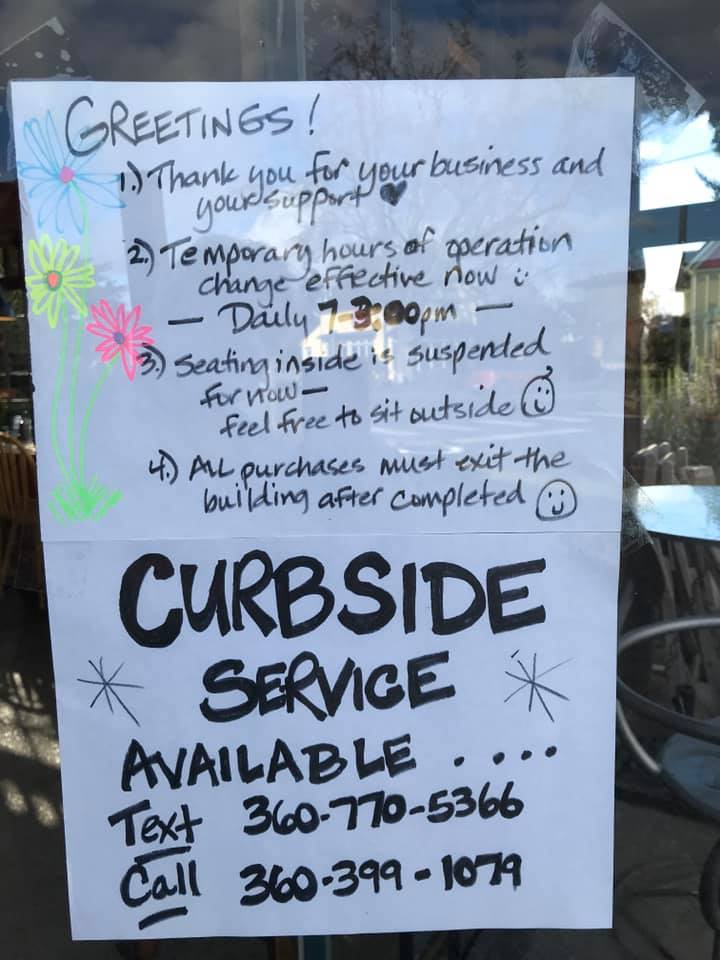 GREETINGS!
1.) Thank you for your business and
your support ♥
2.) Temporary hours of operation
change effective now :)
— Daily 7-3:00pm —
3.) Seating inside is suspended
for now —
feel free to sit outside ☺
4.) All purchases must exit the
building after completed ☺
CURBSIDE
SERVICE
AVAILABLE ....
Text 360-770-5366
Call 360-399-1079